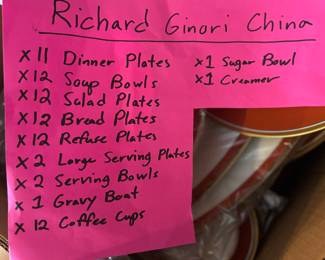 Richard Ginori China
x 11 Dinner Plates
x 12 Soup Bowls
x 12 Salad Plates
x 12 Bread Plates
x 12 Refuse Plates
x 2 Large Serving Plates
x 2 Serving Bowls
x 1 Gravy Boat
x 12 Coffee Cups
x 1 Sugar Bowl
x 1 Creamer